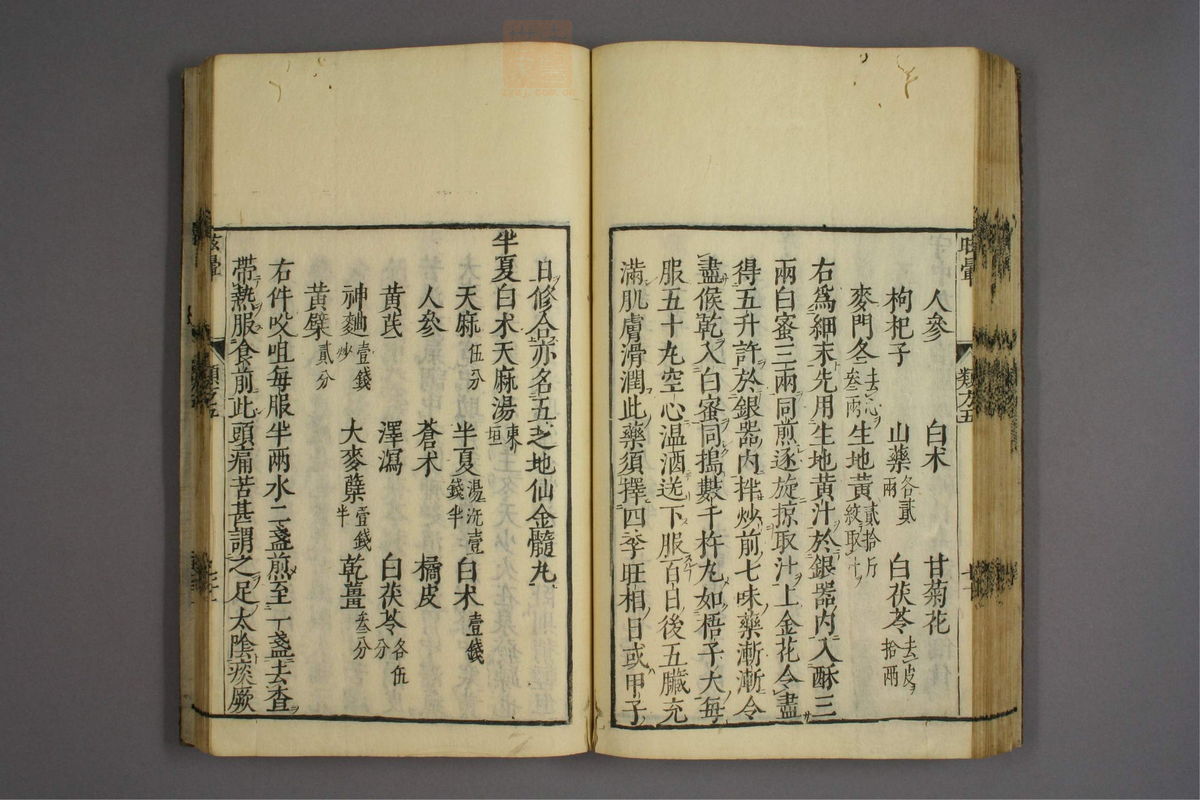 人參　白术　甘菊花
枸杞子　山藥各貳兩　白茯苓去皮拾兩
麥門冬去心叁兩　生地黃貳拾斤絞取汁
右爲細末先用生地黃汁於銀器内入酥三
兩白蜜三兩同煎逐旋掠取汁上金花令盡
得五升許於銀器内拌炒前七味藥漸漸令
盡候乾入白蜜同搗數千杵丸如梧子大每
服五十丸空心温酒送下服百日後五臟充
滿肌膚滑潤此藥須擇四季旺相日或甲子
類方五
日修合亦名五芝地仙金髓丸
半夏白术天麻湯東垣
天麻伍分　半夏湯洗壹錢半　白术壹錢
人參　蒼术　橘皮
黃芪　澤瀉　白茯苓各伍分
神麯壹錢炒　大麥蘖壹錢半　乾薑叁分
黃檗貳分
右件㕮咀每服半兩水二盞煎至一盞去查
帶熱服食前此頭痛苦甚謂之足太陰痰厥